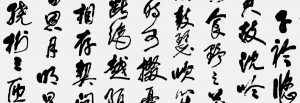 子衿悠
君故沈吟
食野之
鼓瑟吹
時可掇憂
絕越陌
相存契闊
恩月明
繞樹三匝